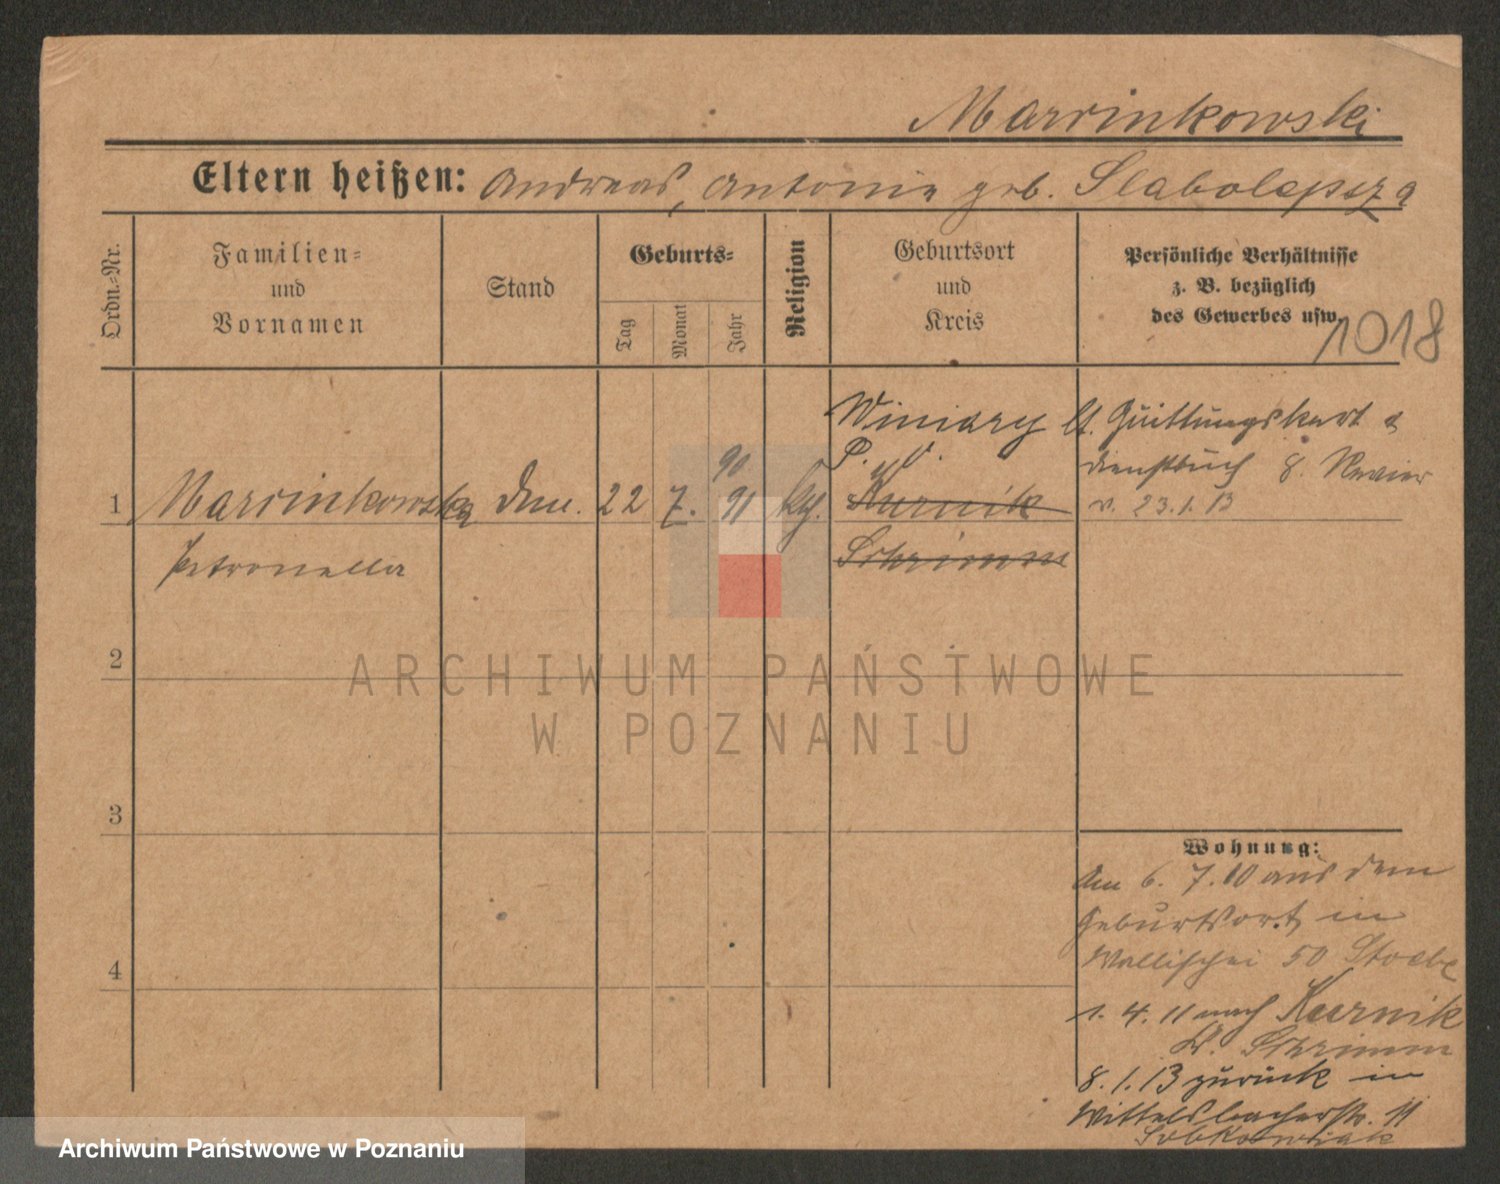 Marcinkowski
Eltern heißen: Andreas, Antonie geb. Slabolepsza
Ordn.-Nr.
Familien-
und
Vornamen
Stand
Geburts-
Tag
Monat
Jahr
Religion
Geburtsort
und
Kreis
Persönliche Verhältnisse
z. B. bezüglich
des Gewerbes usw.
1018
Winiary lt. Quittungskart
P. O. Dienstbuch 8. Revier
90
1 Marcinkowska 22 7. 91 kth. Kurnik v. 23.1.13
Petronella Schrimm
2
3
4
Wohnung:
Am 6. 7. 10 aus dem
Geburtsort in
Wallischei 50
1. 4. 11 nach Kurnik
Kr. Schrimm
8. 1. 13 zurück in
Wittelsbacherstr. 11
Sobkowiak
ARCHIWUM PAŃSTWOWE
W POZNANIU
Archiwum Państwowe w Poznaniu